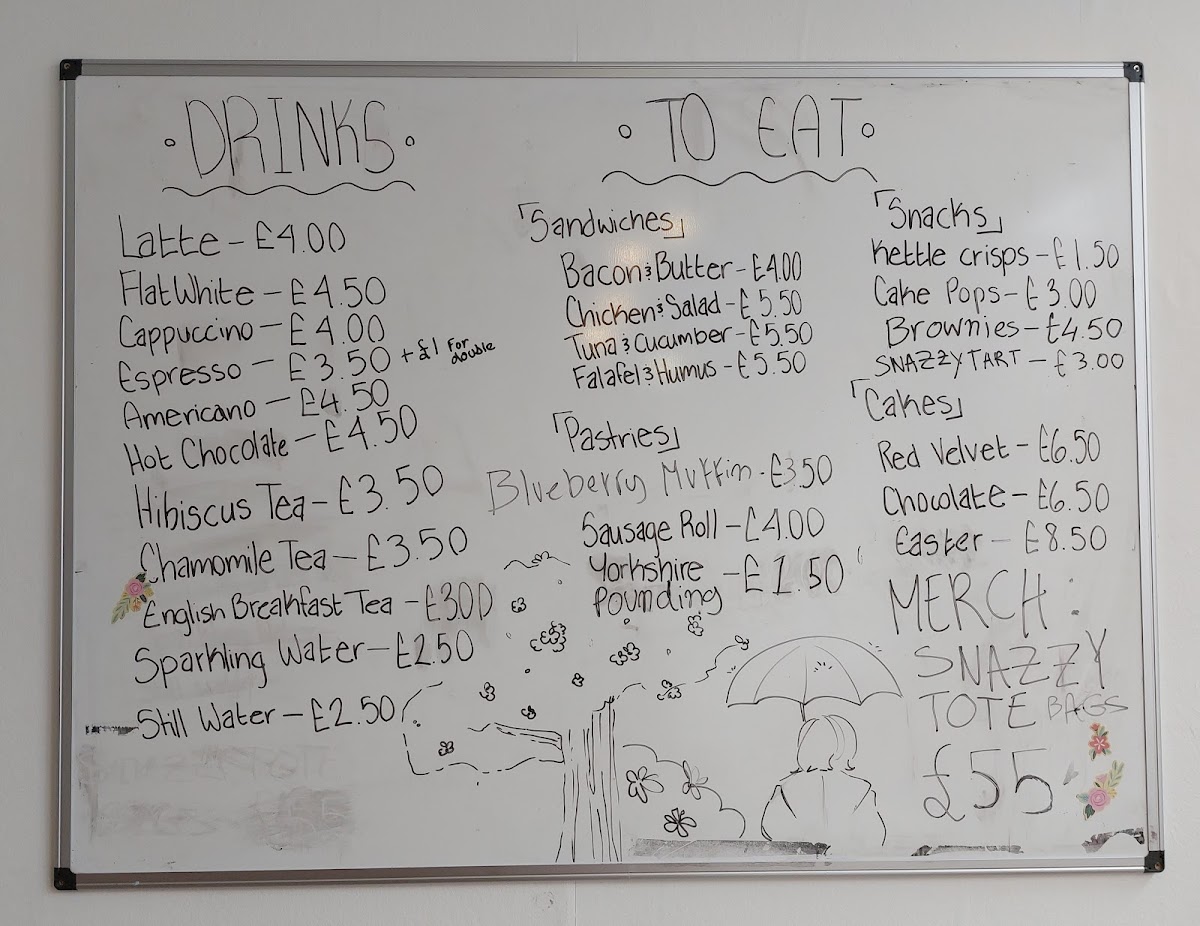 DRINKS
Latte - £4.00
Flat White - £4.50
Cappuccino - £4.00
Espresso - £3.50 + £1 for double
Americano - £4.50
Hot Chocolate - £4.50
Hibiscus Tea - £3.50
Chamomile Tea - £3.50
English Breakfast Tea - £300
Sparkling Water - £2.50
Still Water - £2.50
TO EAT
「Sandwiches」
Bacon & Butter - £4.00
Chicken & Salad - £5.50
Tuna & Cucumber - £5.50
Falafel & Humus - £5.50
「Pastries」
Blueberry Muffin - £3.50
Sausage Roll - £4.00
Yorkshire
pounding - £1.50
「Snacks」
Kettle crisps - £1.50
Cake Pops - £3.00
Brownies - £4.50
SNAZZY TART - £3.00
「Cakes」
Red Velvet - £6.50
Chocolate - £6.50
Easter - £8.50
MERCH:
SNAZZY
TOTE BAGS
£55